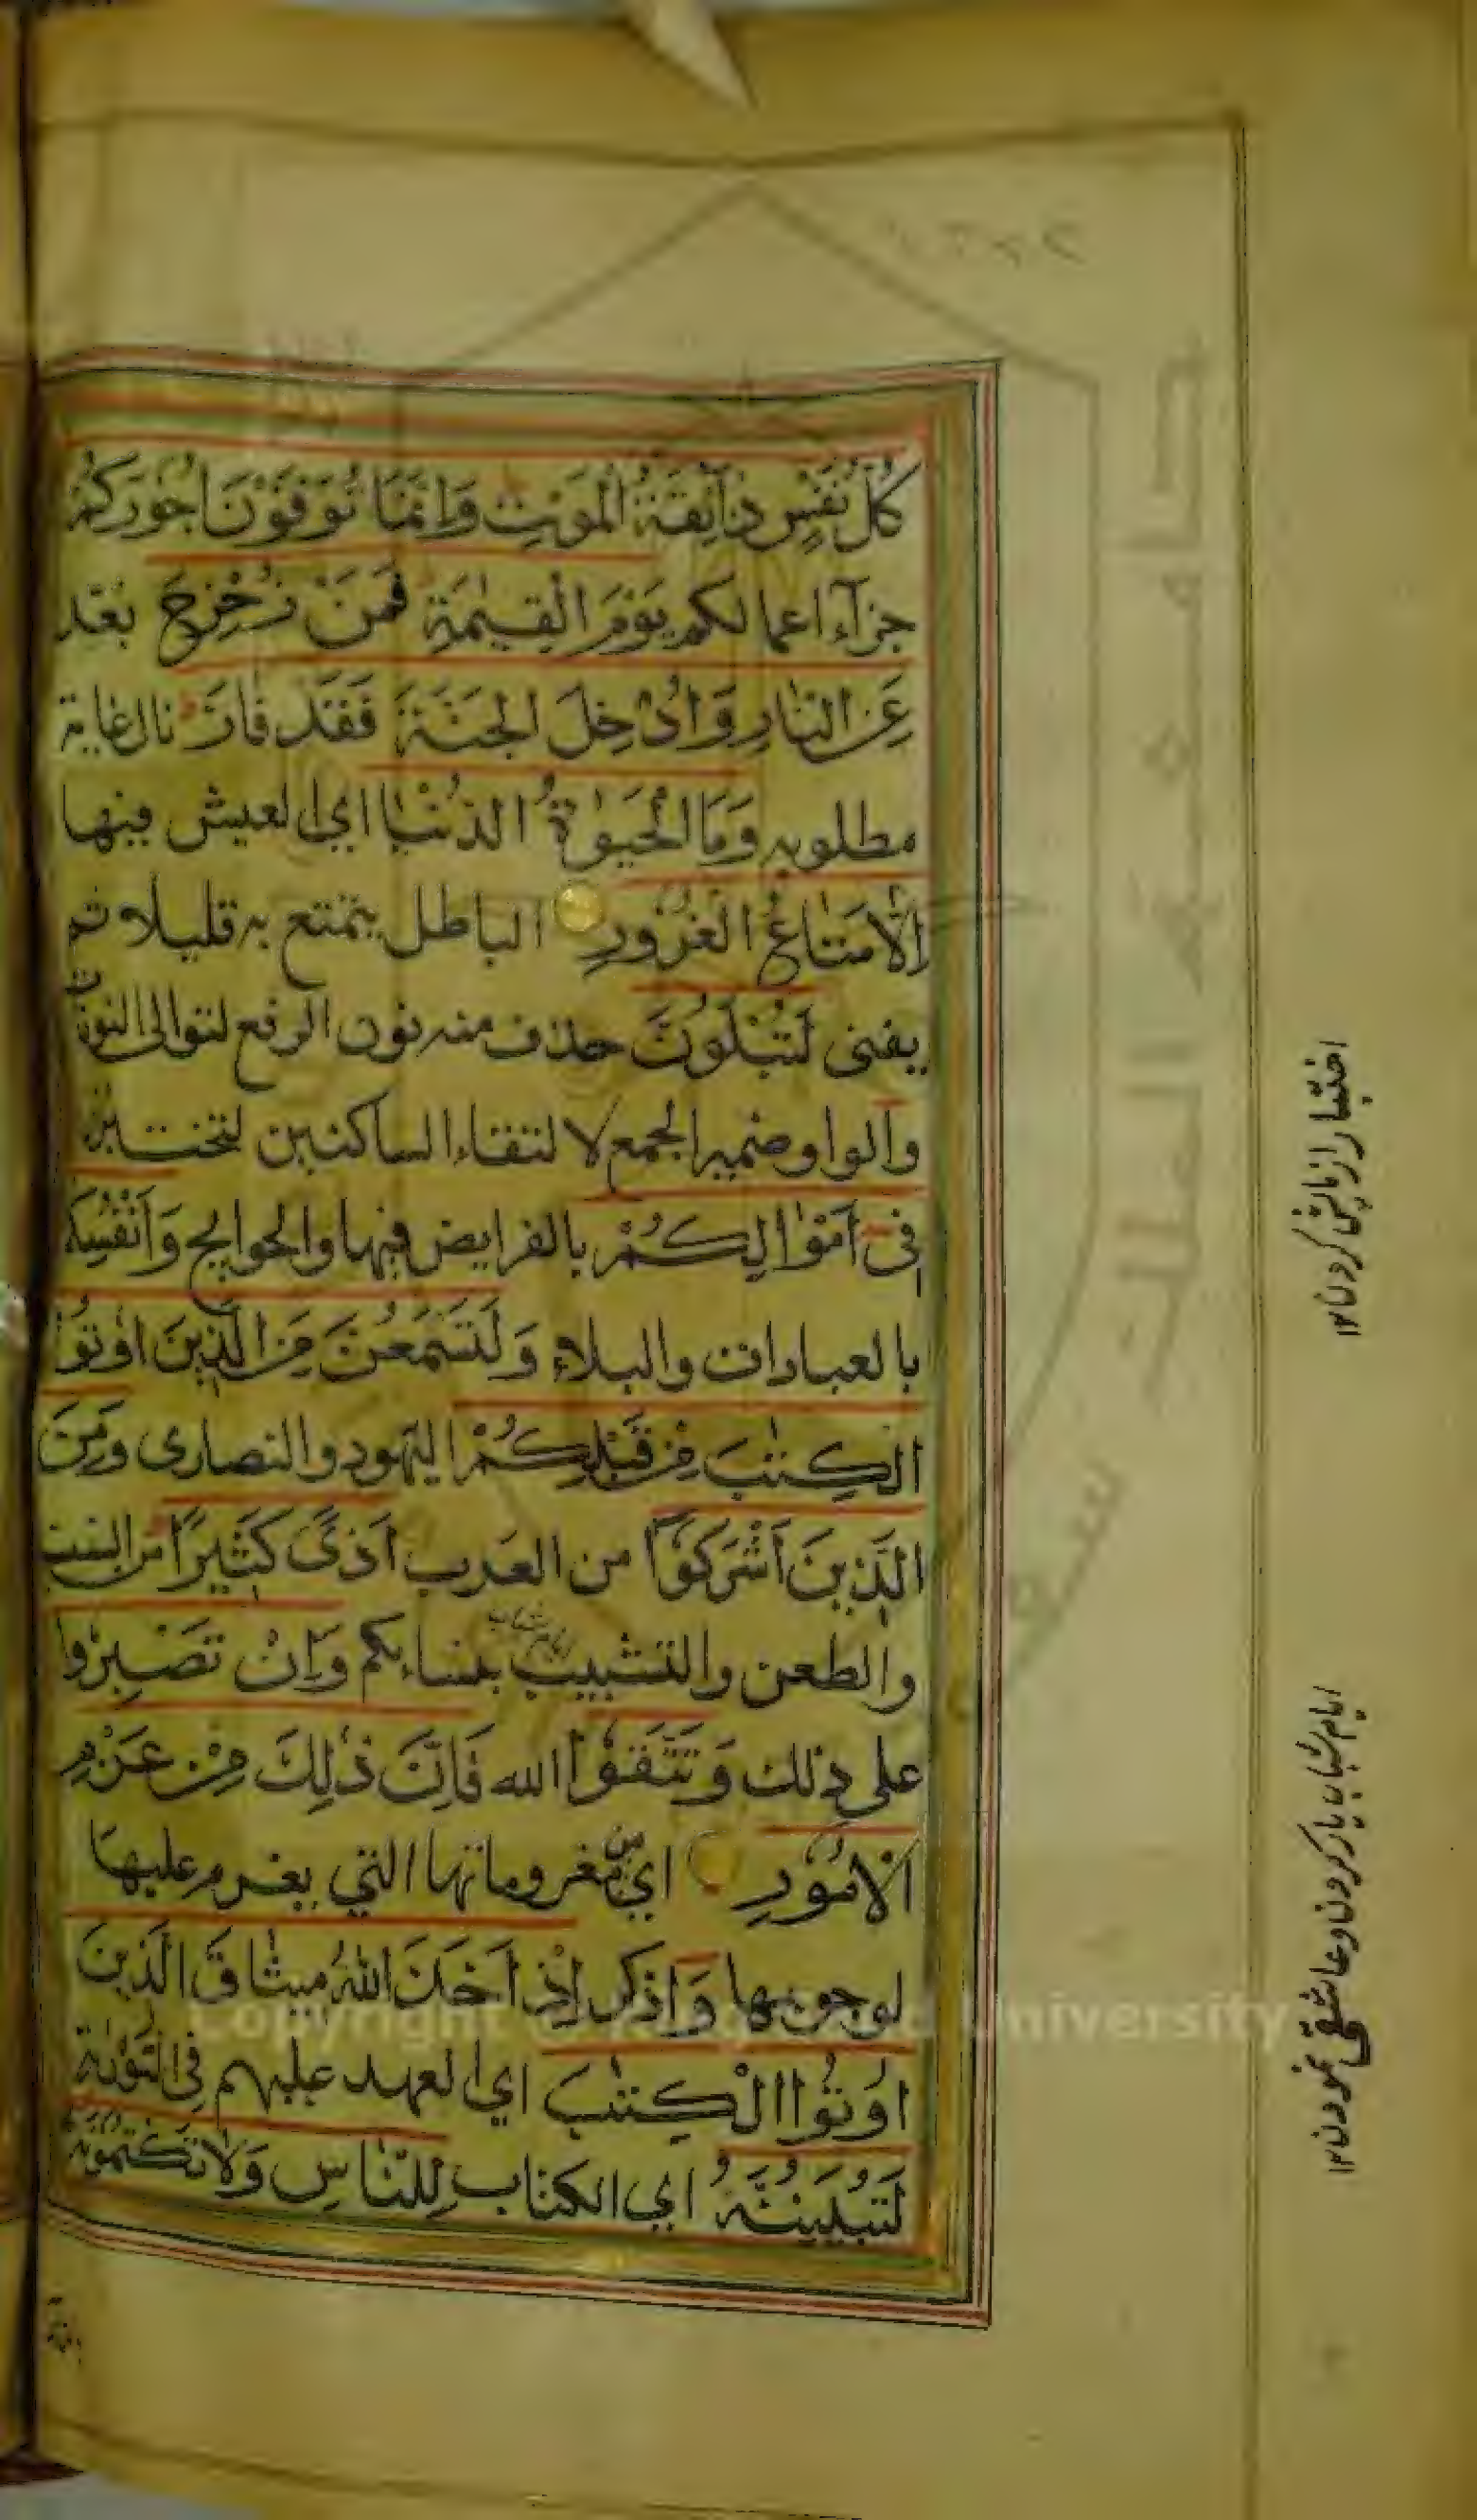 كُلُّ نَفْسٍ ذَآئِقَةُ الْمَوْتِ وَاِنَّمَا تُوَفَّوْنَ اُجُوْرَكُمْ
جزآء اعمالكم يَوْمَ الْقِيٰمَةِ فَمَنْ زُحْزِحَ بعد
عَنِ النَّارِ وَاُدْخِلَ الْجَنَّةَ فَقَدْ فَازَ نال غاية
مطلوبه وَمَا الْحَيٰوةُ الدُّنْيَا اي العيش فيها
اِلَّا مَتَاعُ الْغُرُوْرِ الباطل يتمتع به قليلا ثم
يفنى لَتُبْلَوُنَّ حذف منه نون الرفع لتوالى النونات
والواو ضمير الجمع لالتقاء الساكنين لتختبرن
فِىْ اَمْوَالِكُمْ بالفرايض فيها والحوايج وَاَنْفُسِكُمْ
بالعبادات والبلاء وَلَتَسْمَعُنَّ مِنَ الَّذِيْنَ اُوْتُوا
الْكِتٰبَ مِنْ قَبْلِكُمْ اليهود والنصارى وَمِنَ
الَّذِيْنَ اَشْرَكُوْٓا من العرب اَذًى كَثِيْرًا من السب
والطعن والتشبيب بنسايكم وَاِنْ تَصْبِرُوا
على ذلك وَتَتَّقُوا الله فَاِنَّ ذٰلِكَ مِنْ عَزْمِ
الْاُمُوْرِ اي من معزوماتها التي يعزم عليها
لوجوبها وَاذكر اِذْ اَخَذَ اللّٰهُ مِيْثَاقَ الَّذِيْنَ
اُوْتُوا الْكِتٰبَ اي العهد عليهم فى التورىة
لَتُبَيِّنُنَّهٗ اي الكتاب لِلنَّاسِ وَلَا تَكْتُمُوْنَهٗ
اختبار ازمايش كردن ١٢
ايام شباب ياد كردن وعاشقى نمودن ١٢
Copyright © University